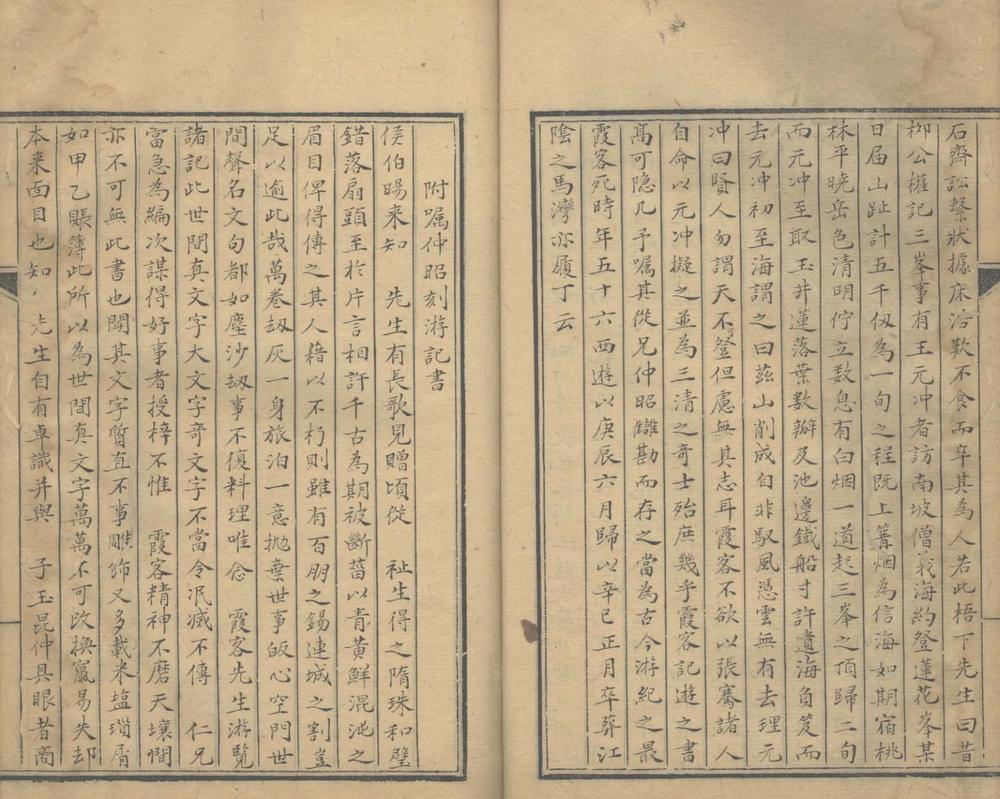 石齋訟繫狀據床浩歎不食而卒其為人若此梧下先生曰昔
柳公權記三峯事有王元冲者訪南坡僧義海約登蓮花峯某
日屆山趾計五千仭為一旬之程既上篝烟為信海如期宿桃
林平曉岳色清明佇立數息有白烟一道起三峯之頂歸二旬
而元冲至取玉井蓮落葉数瓣及池邊鐵船寸許遺海負笈而
去元冲初至海謂之曰茲山削成自非馭風憑雲無有去理元
冲曰賢人勿謂天不登但慮無其志耳霞客不欲以張騫諸人
自命以元冲擬之並為三清之奇士殆庶幾乎霞客記遊之書
髙可隠几予嘱其從兄仲昭讎勘而存之當為古今游紀之最
霞客死時年五十六西遊以庚辰六月歸以辛巳正月卒葬江
陰之馬灣亦履丁云
附嘱仲昭刻游記書
侯伯暘来知　先生有長歌見贈頃從　祉生得之隋珠和璧
錯落扇頭至於片言相許千古為期被斷菑以青黃鮮混沌之
眉目俾得傳之其人藉以不朽則雖有百朋之錫連城之割豈
足以逾此哉萬卷刼灰一身旅泊一意抛棄世事皈心空門世
間聲名文句都如塵沙刼事不復料理唯念　霞客先生游覽
諸記此世間真文字大文字奇文字不當令泯滅不傳　仁兄
當急為編次謀得好事者授梓不惟　霞客精神不磨天壤間
亦不可無此書也聞其文字質直不事雕飾又多載米塩瑣屑
如甲乙賬簿此所以為世間真文字萬萬不可改換竄易失却
本来面目也知　先生自有卓識并與　子玉昆仲具眼者商